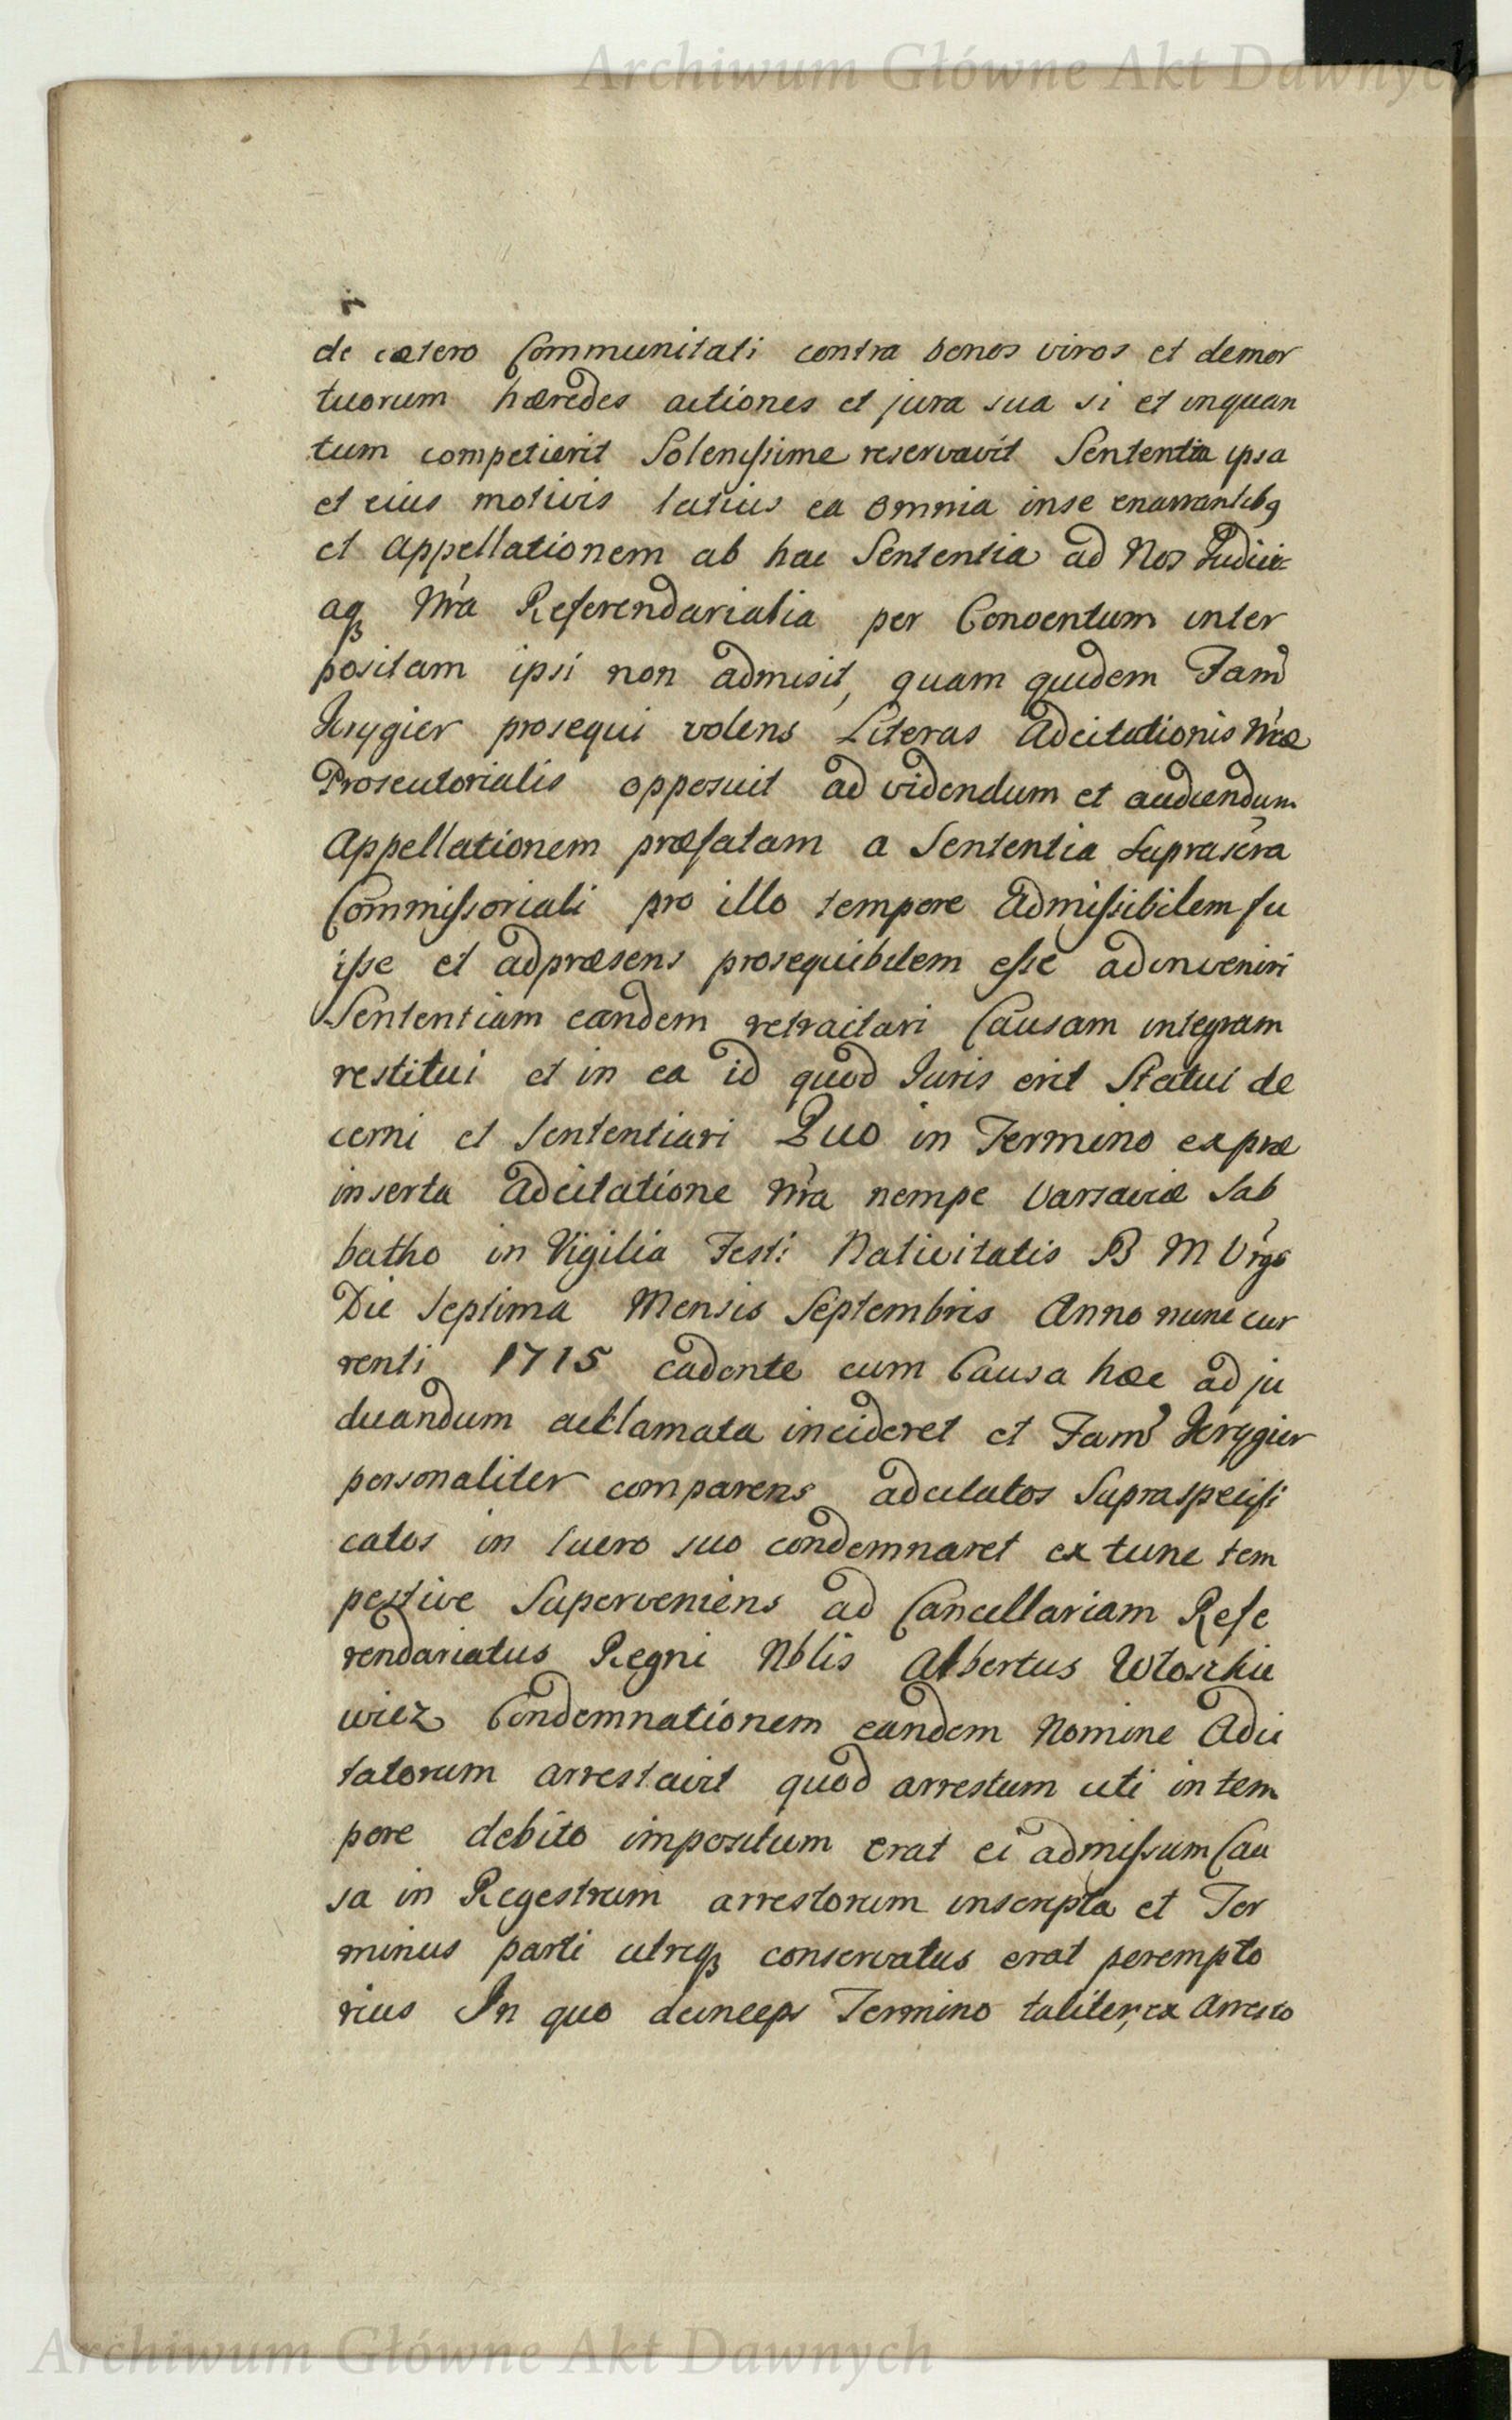 Archiwum Główne Akt Dawnych
de cætero Communitati contra bonos viros et demor
tuorum hæredes actiones et jura sua si et inquan
tum competierit Solenissime reservavit Sententia ipsa
et eius motivis latius ea omnia inse enarrantibq
et Appellationem ab hac Sententia ad Nos Judici
aq Nra Referendarialia per Conventum inter
positam ipsi non admisit, quam quidem Fam
Krygier prosequi volens Literas Adcitationis Nræ
Prosecutorialis opposuit ad videndum et audiendum
Appellationem præfatam a Sententia Suprascra
Commissoriali pro illo tempore Admissibilem fu
isse et adpræsens prosequibilem esse adinveniri
Sententiam eandem retractari Causam integram
restitui et in ea id quod Juris erit Statui de
cerni et Sententiari Quo in Termino ex præ
inserta Adcitatione Nra nempe Varsaviæ Sab
batho in Vigilia Festi Nativitatis B M Vrgs
Die Septima Mensis Septembris Anno nunc cur
renti 1715 cadente cum Causa hæc ad ju
dicandum acclamata incideret et Fam Krygier
personaliter comparens adcitatos Supraspecifi
catos in lucro suo condemnaret ex tunc tem
pestive Superveniens ad Cancellariam Refe
rendariatus Regni Nblis Albertus Wloszkie
wicz Condemnationem eandem Nomine Adci
tatorum arrestavit quod arrestum uti in tem
pore debito impositum erat ei admissum Cau
sa in Regestrum arrestorum inscripta et Ter
minus parti utriq conservatus erat perempto
rius In quo deinceps Termino taliter, ex Arresto
Archiwum Główne Akt Dawnych